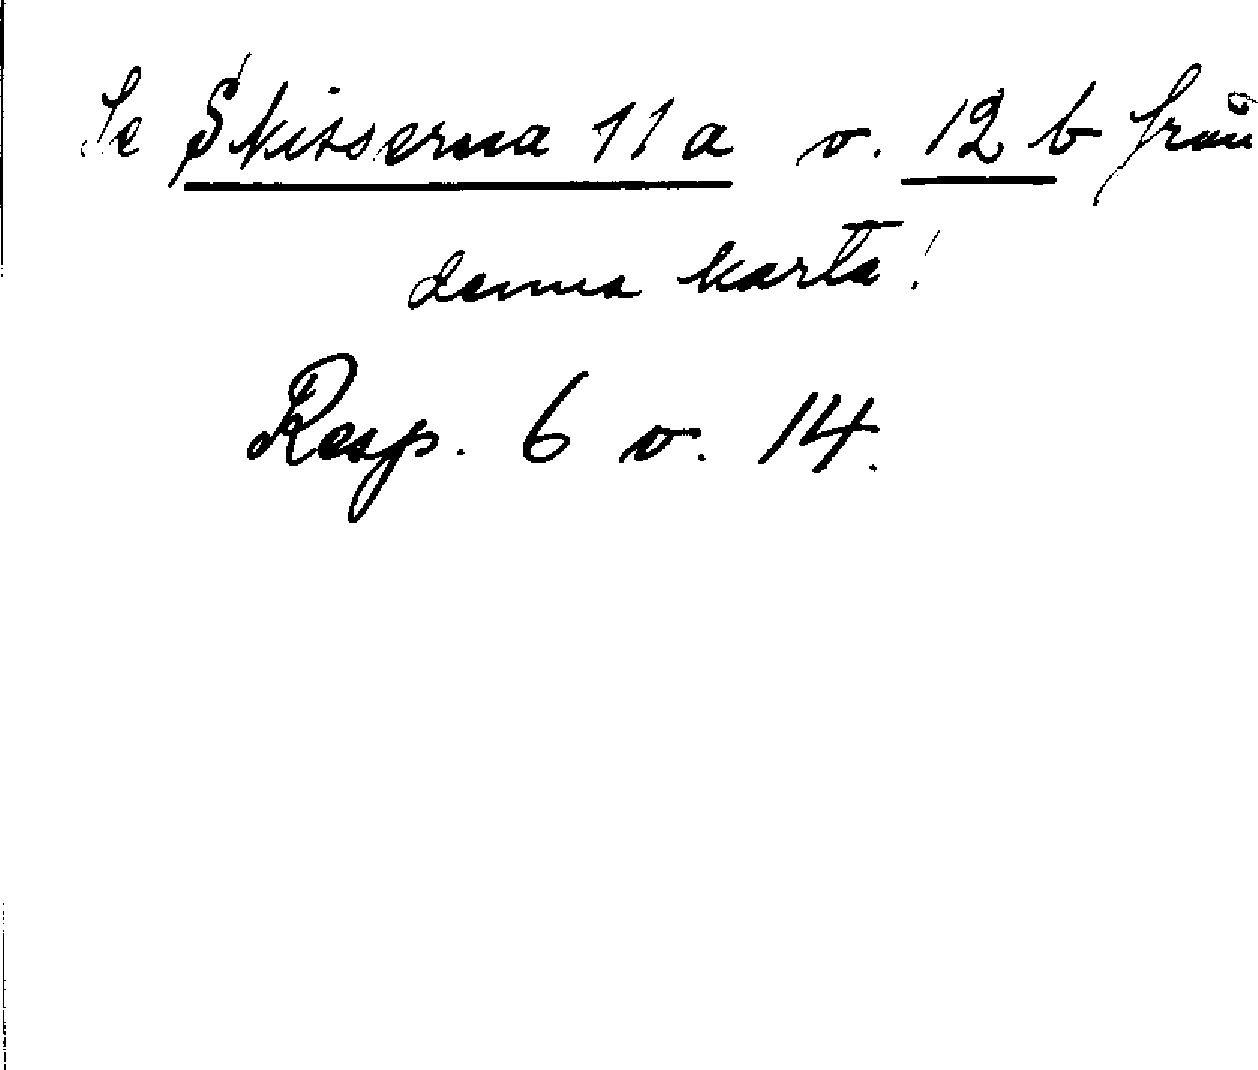 Se Skisserna 11a o. 12 b från
denna karta!
Resp. 6 o. 14.